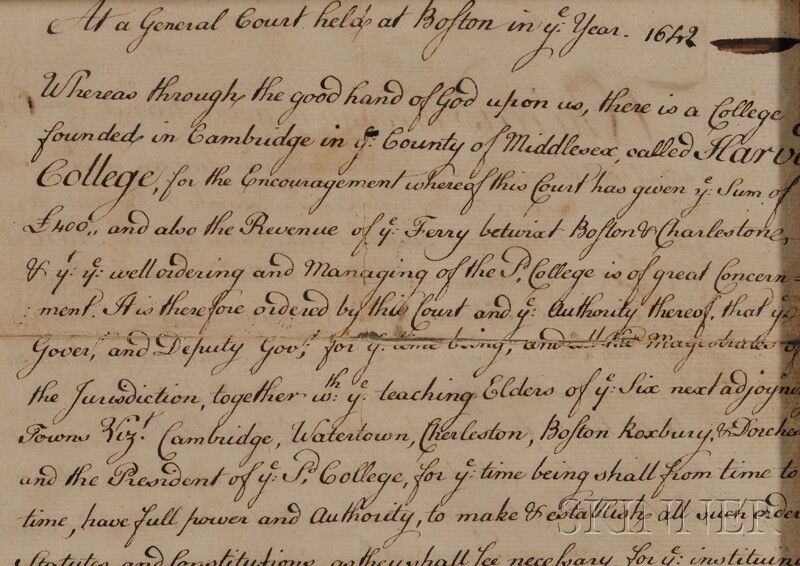 At a General Court held at Boston in yͤ Year. 1642
Whereas through the good hand of God upon us, there is a College
founded in Cambridge in yͤ County of Middlesex, called Harv
College, for the Encouragement whereof this Court has given yͤ Sum of
£400,, and also the Revenue of yͤ Ferry betwixt Boston & Charlestone,
& yͭ yͤ well ordering and Managing of the Sͩ College is of great Concern=
:ment. It is therefore ordered by this Court and yͤ Authority thereof, that yͤ
Goverͬ and Deputy Govͬ for yͤ time being, and all the Magistrates of
the Jurisdiction, together wͭͪ yͤ teaching Elders of yͤ Six next adjoyning
Towns Vizͭ Cambridge, Watertown, Cherleston, Boston Roxbury, & Dorches
and the President of yͤ Sͩ College, for yͤ time being shall from time to
time, have full power and Authority, to make & establish all such order
Statutes and Constitutions, as they shall see necessary for yͤ instituin
SKINNER